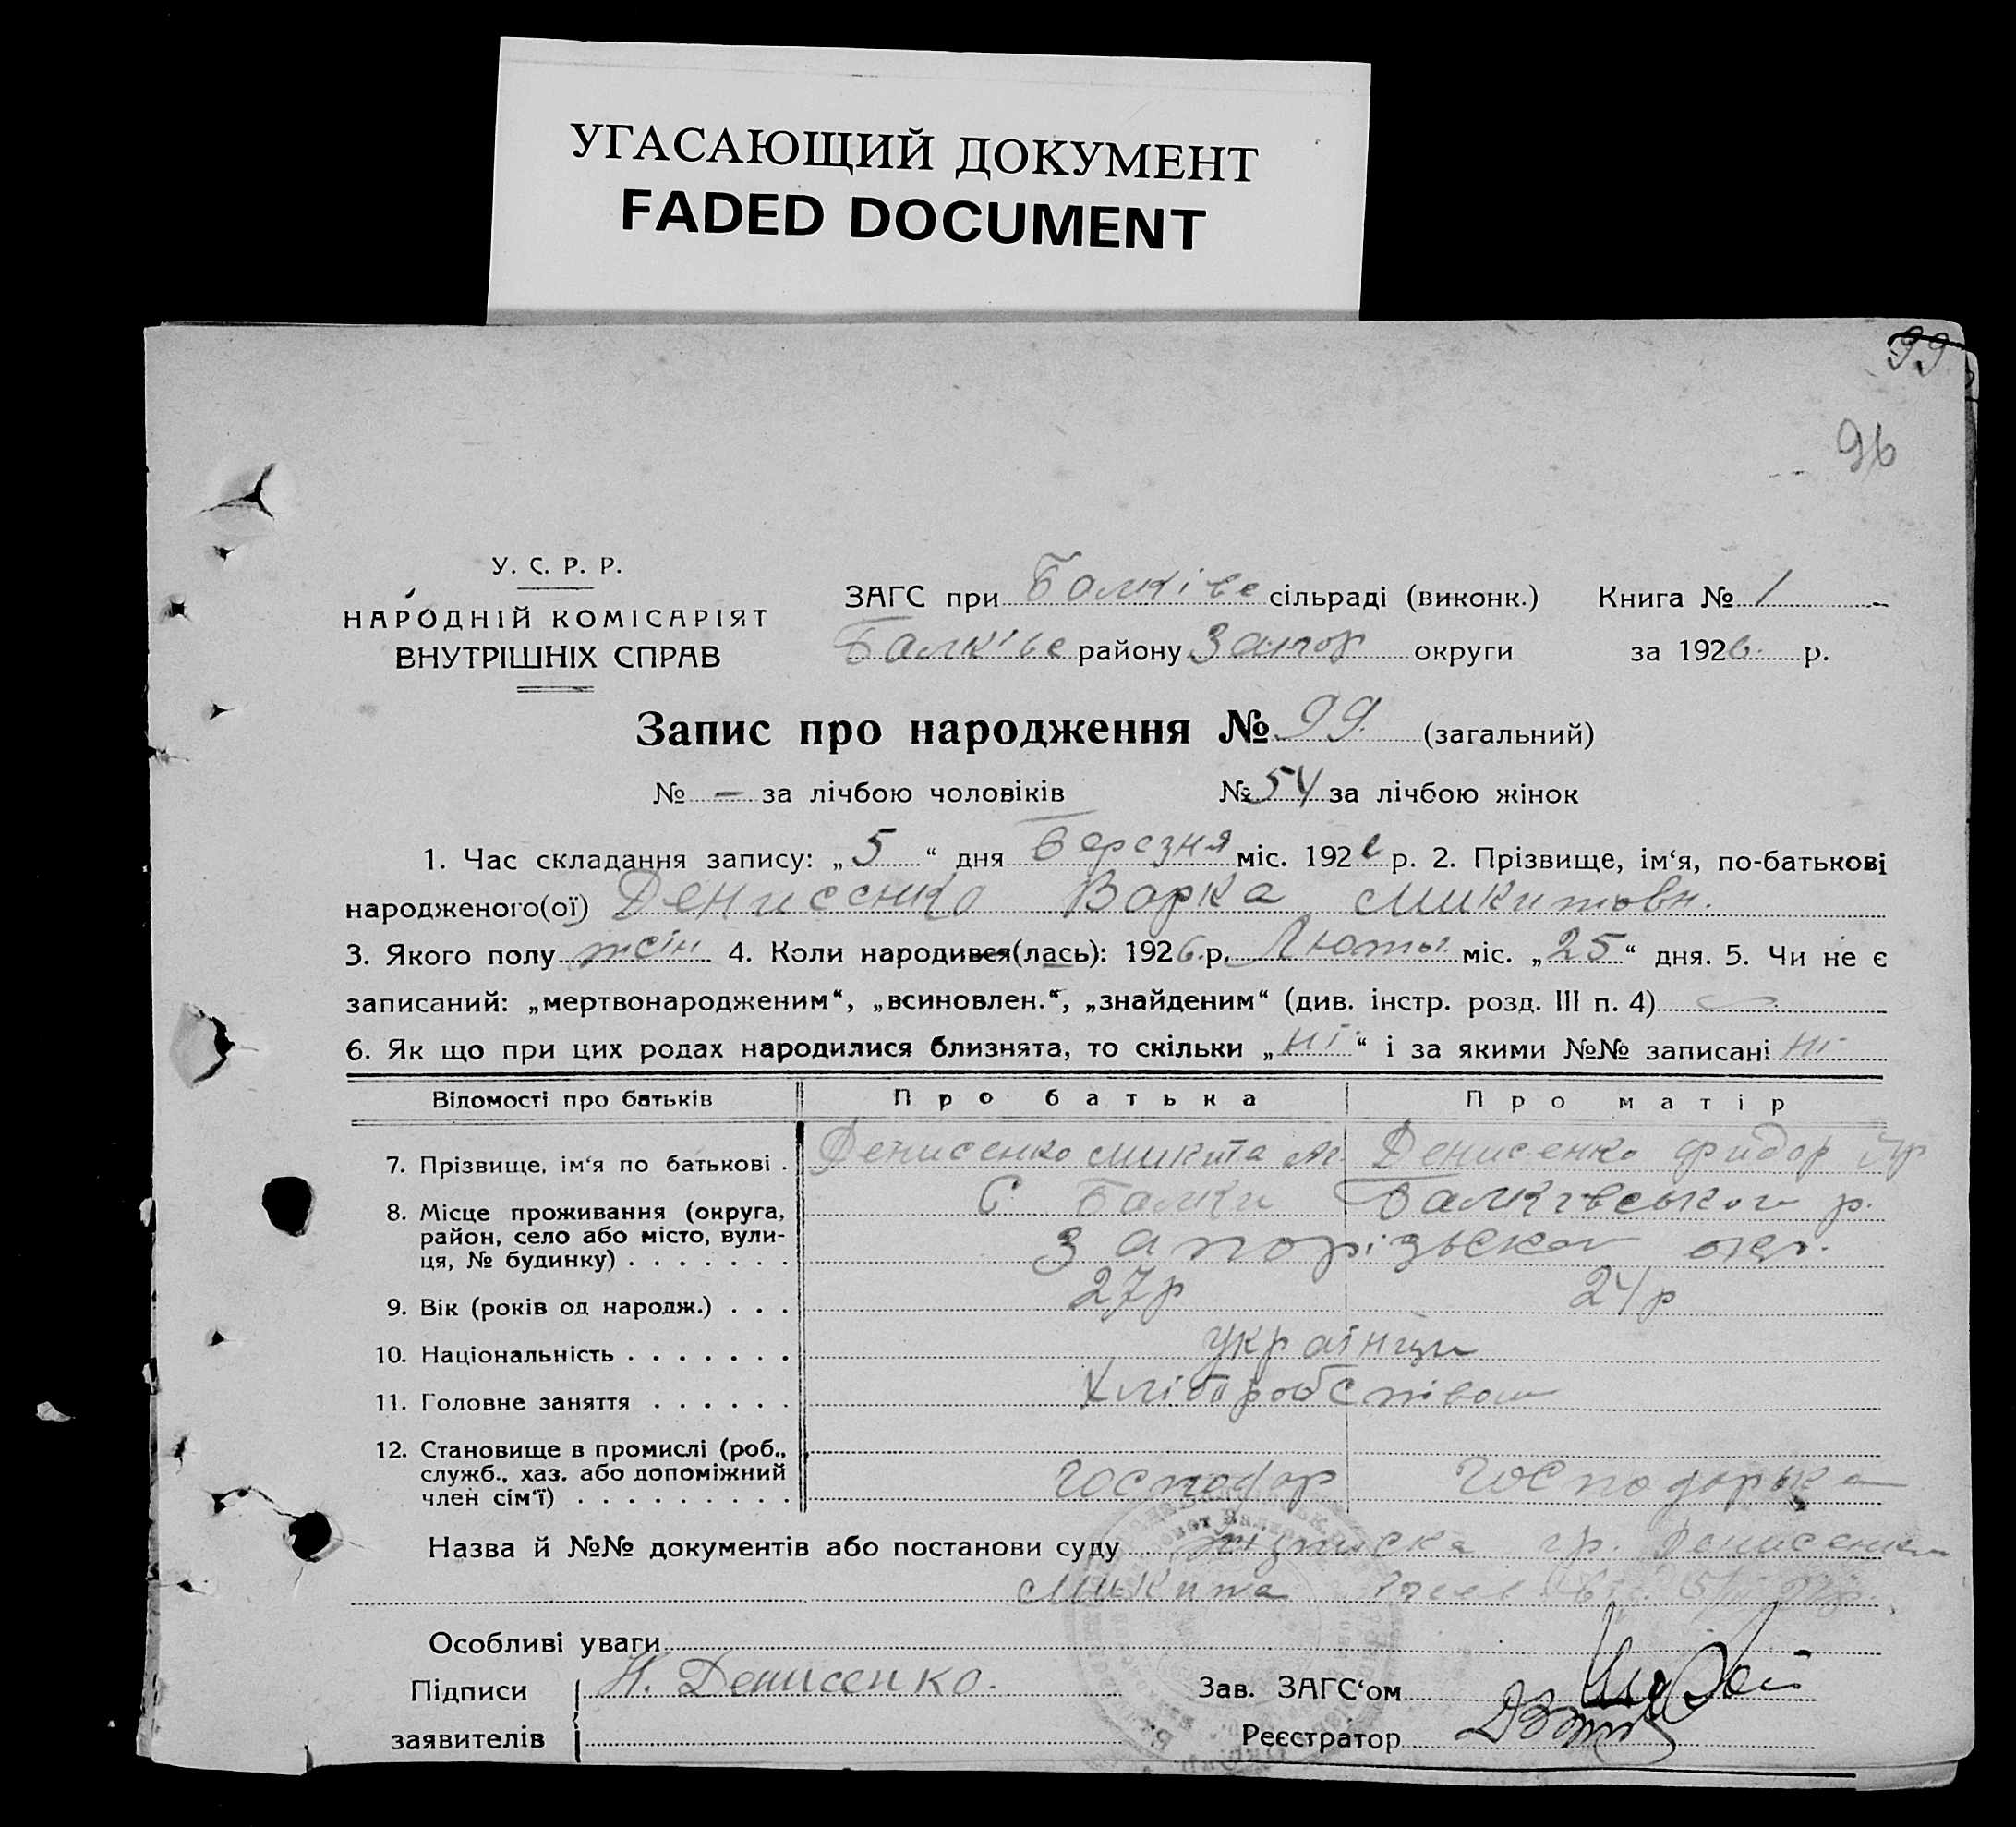 УГАСАЮЩИЙ ДОКУМЕНТ
FADED DOCUMENT
99
96
У. С. Р. Р.
НАРОДНІЙ КОМІСАРІЯТ
ВНУТРІШНІХ СПРАВ
ЗАГС при Балківс сільраді (виконк.) Книга № 1
Балківс району Запор округи за 1926 р.
Запис про народження № 99. (загальний)
№ — за лічбою чоловіків № 54 за лічбою жінок
1. Час складання запису: „5“ дня Березня міс. 1926 р. 2. Прізвище, ім‘я, по-батькові
народженого(ої) Денисенко Варка Микитовн.
3. Якого полу жін 4. Коли народився(лась): 1926 р. Лютого міс. „25“ дня. 5. Чи не є
записаний: „мертвонародженим“, „всиновлен.“, „знайденим“ (див. інстр. розд. III п. 4)
6. Як що при цих родах народилися близнята, то скільки „ні“ і за якими №№ записані ні
Відомості про батьків Про батька Про матір
7. Прізвище, ім‘я по батькові . Денисенко Микита Денисенко Фидор
8. Місце проживання (округа, С Балки Балківського р.
район, село або місто, вули-
ця, № будинку) . . . . . . . Запорізьскої окр.
9. Вік (років од народж.) . . . 27 р 24 р
10. Національність . . . . . . . українци
11. Головне заняття . . . . . . Хліборобство
12. Становище в промислі (роб.,
служб., хаз. або допоміжний Господар Господарька
член сім‘ї) . . . . . . . . .
Назва й №№ документів або постанови суду гр. Денисенка
Микита
Особливі уваги
Підписи Н. Денисенко. Зав. ЗАГС‘ом
заявителів Реєстратор